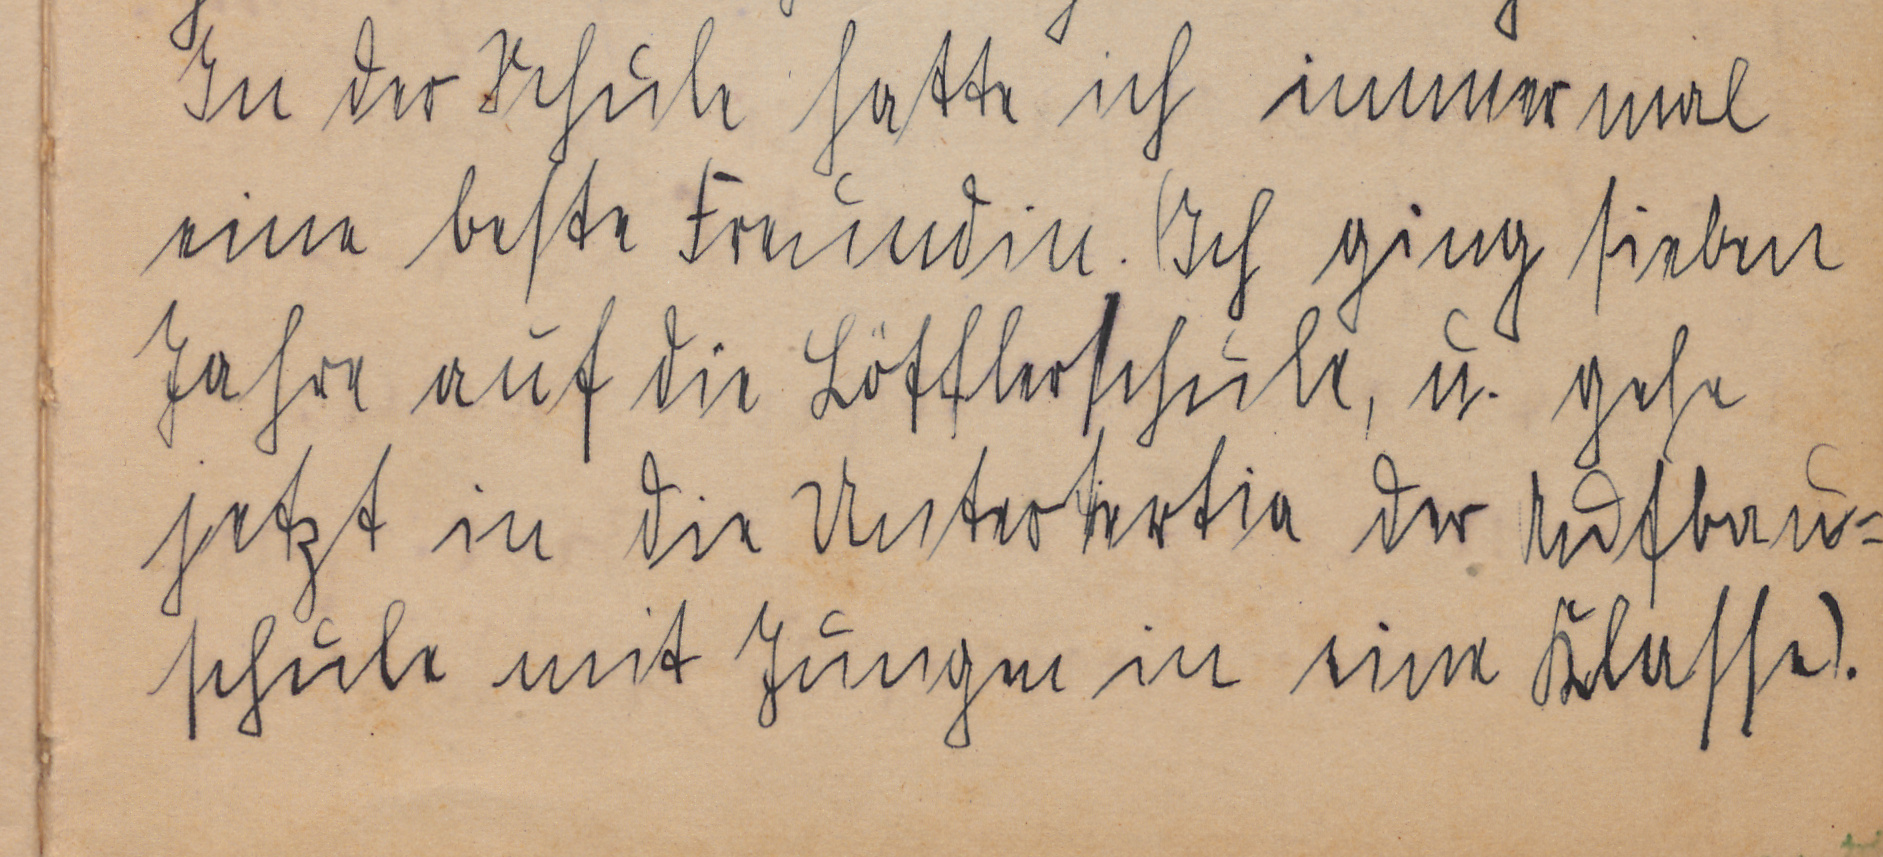 In der Schule hatte ich immer mal
eine beste Freundin. (Ich ging sieben
Jahre auf die Löfflerschule, u. gehe
jetzt in die Untertertia der Aufbau=
schule mit Jungen in eine Klasse).